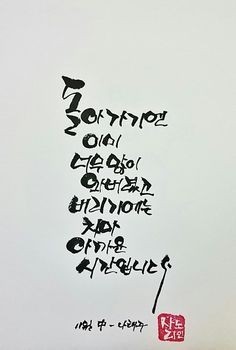 돌아가기엔
이미
너무 많이
와버렸고
버리기에는
차마
아까운
시간입니다
中 - 나태주